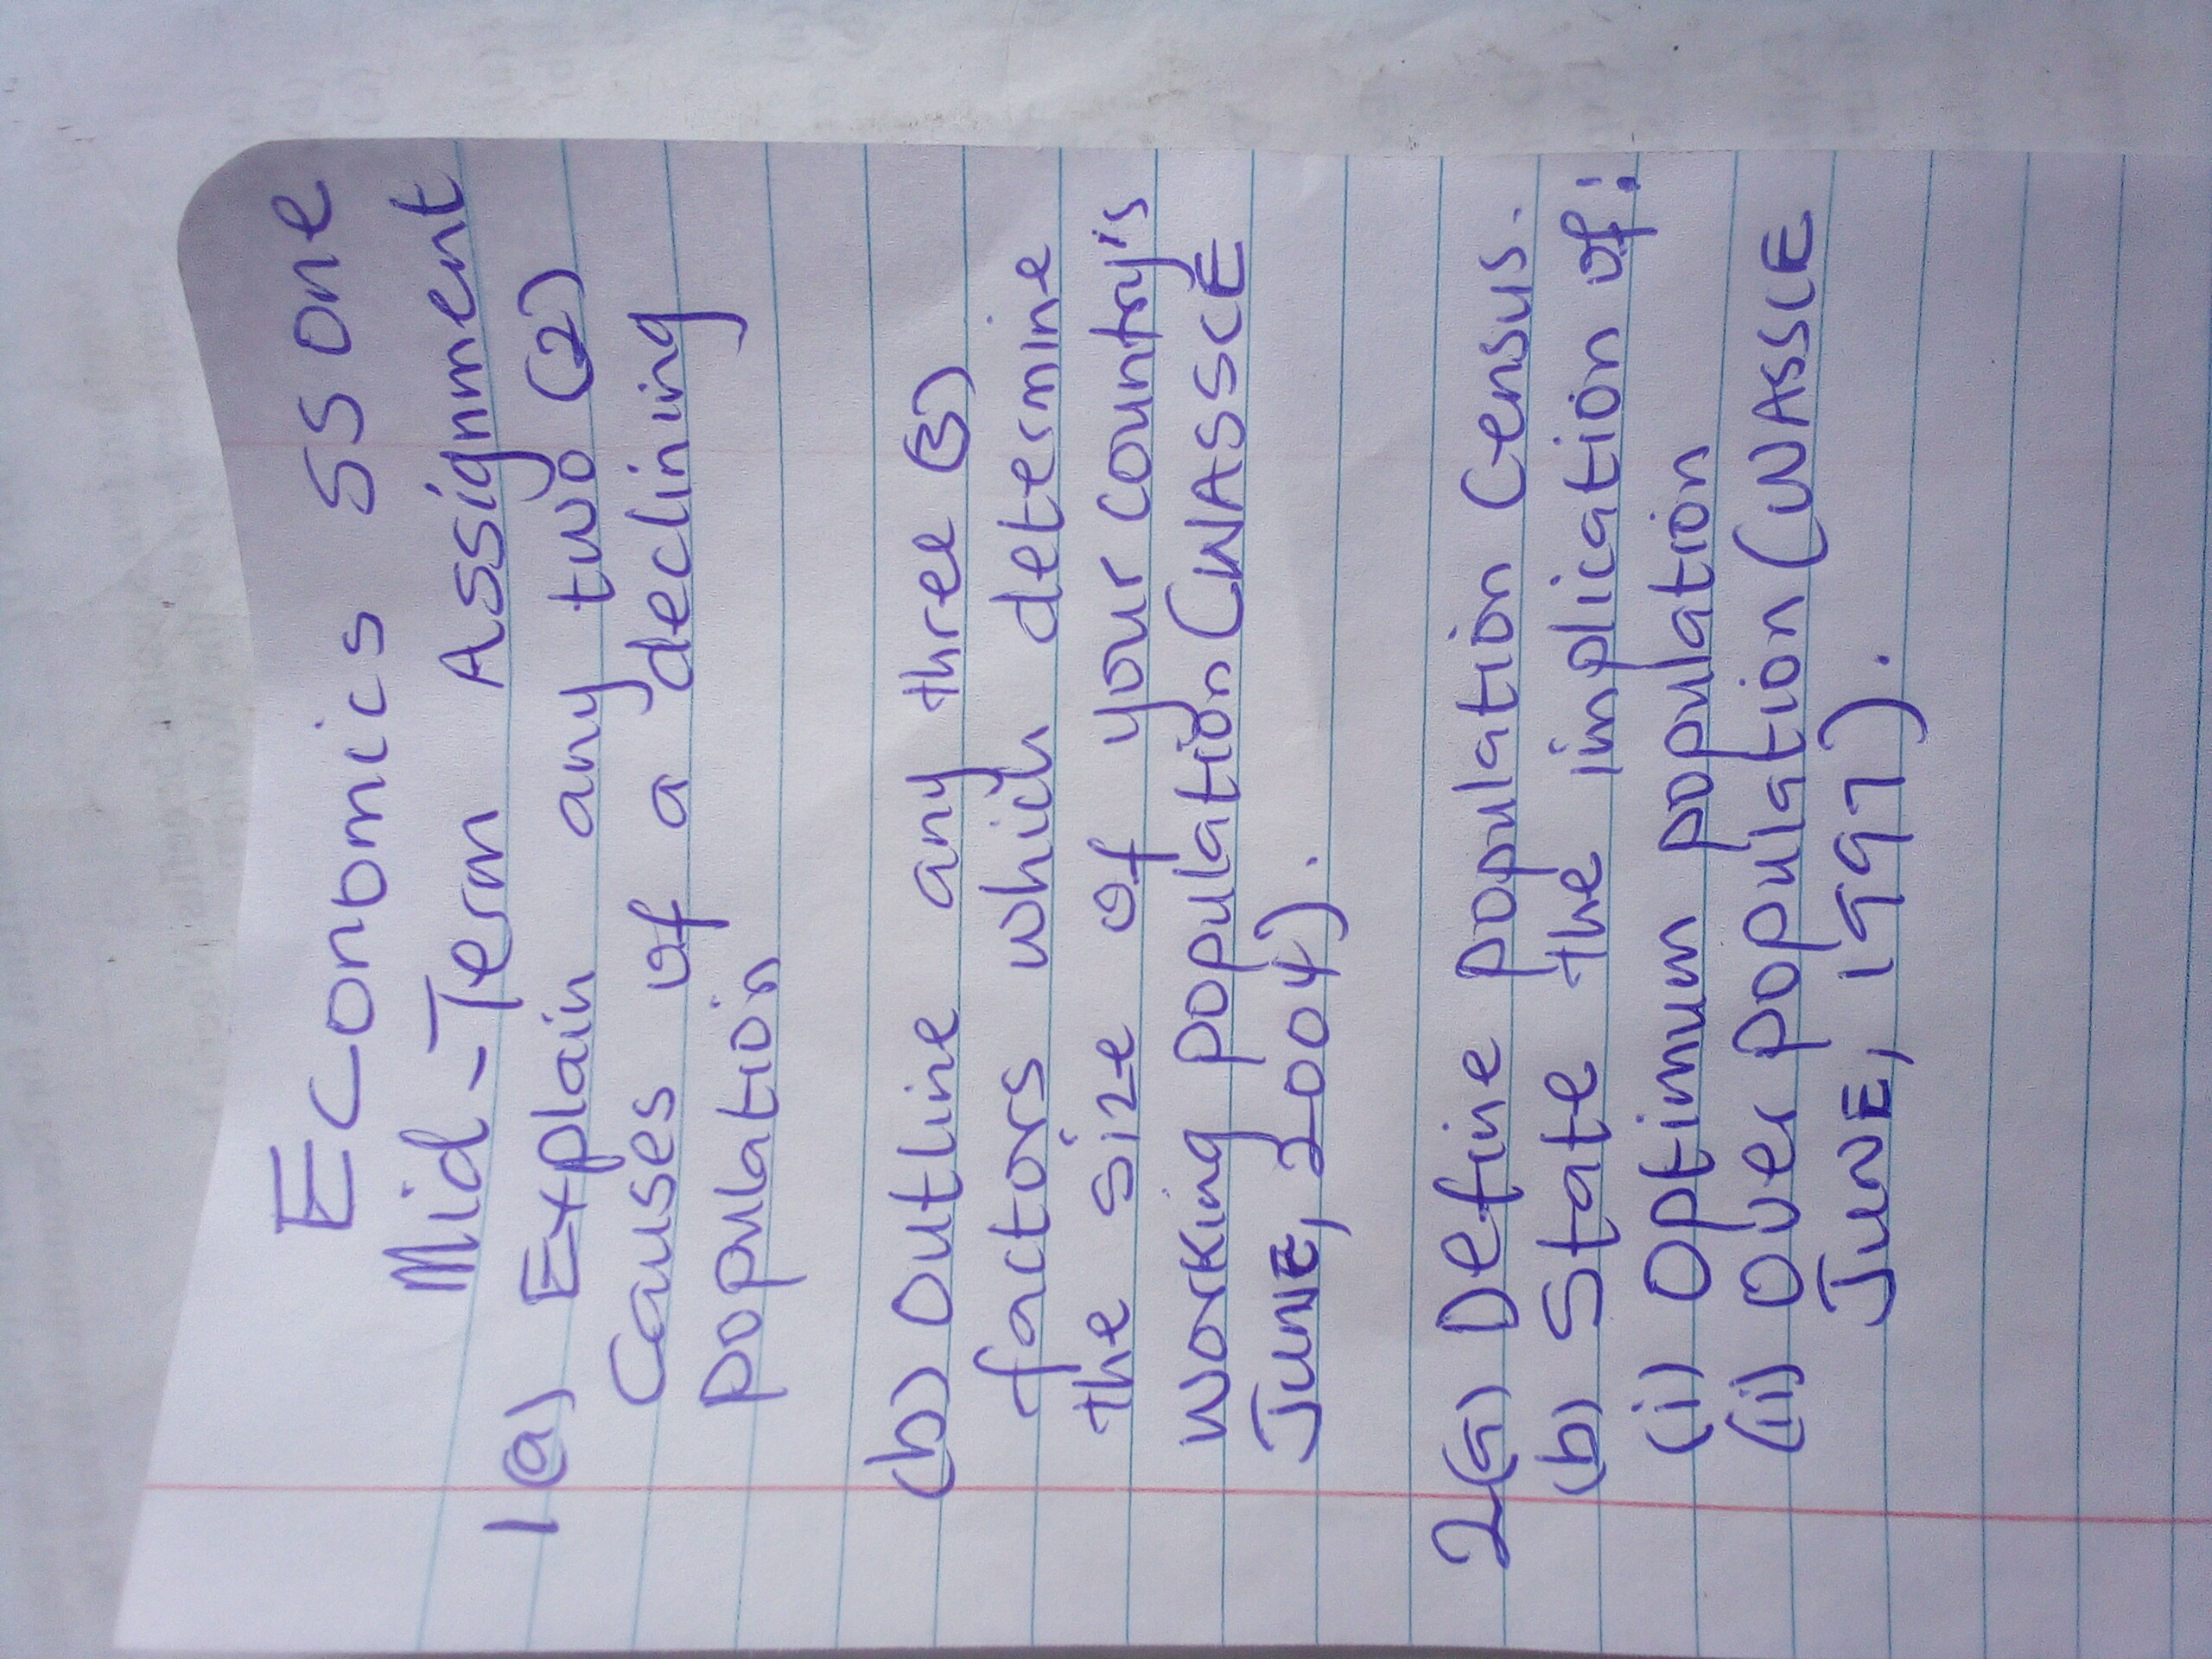 Economics SS One
Mid-Term Assignment
1(a) Explain any two (2)
Causes of a declining
population
(b) Outline any three (3)
factors which determine
the size of your country's
working population (WASSCE
JUNE, 2004).
2(a) Define population Census.
(b) State the implication of:
(i) Optimum population
(ii) Over population (WASSCE
JUNE, 1997).